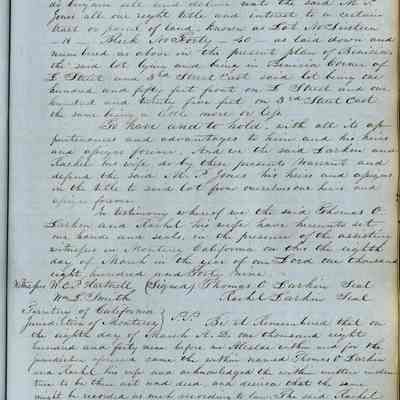 do bargain sell and deliver unto the said M. P.
Jones all our right title and interest to a certain
tract or parcel of land, known as Lot No Sixteen
16 Block No Forty 40 as laid down and
numbered as above in the present plan of Benicia
the said lot lying and being in Benicia Corner of
I Street and 3rd Street East said lot being one
hundred and fifty feet front on I Street and one
hundred and twenty five feet on 3rd Street East
the same being a little more or less
To have and to hold, with all its ap-
purtenances and advantages to him and his heirs
and assigns forever. And we the said Larkin and
Rachel his wife do by these presents Warrant and
defend the said M. P. Jones his heirs and assigns
in the title to said lot from ourselves our heirs and
assigns forever
In testimony whereof we the said Thomas O.
Larkin and Rachel his wife have hereunto set
our hands and seals, in the presence of the assisting
witnesses in Monterey California on this the eighth
day of March in the year of our Lord one thousand
eight hundred and Forty Nine.
Witnesses W. E. P. Hartnell (Signed) Thomas O Larkin Seal
Wm L. Smith Rachel Larkin Seal
Territory of California
Jurisdiction of Monterey Be it Remembered that on
the eighth day of March A. D. one thousand eight
hundred and forty nine before me Alcalde within and for the
jurisdiction aforesaid came the within named Thomas O Larkin
and Rachel his wife and acknowledged the within written inden-
ture to be their act and deed, and desired that the same
might be recorded as such according to law. The said Rachel